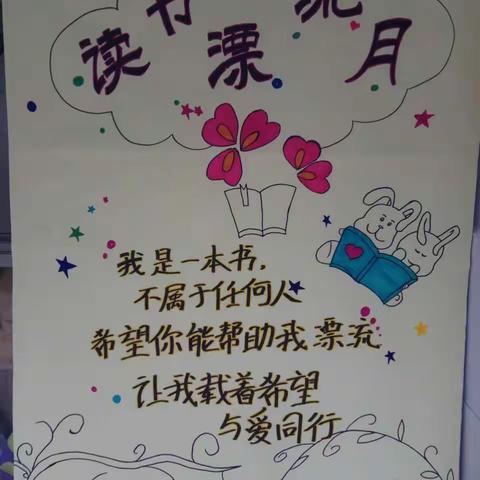 读书漂流月
我是一本书,
不属于任何人
希望你能帮助我票流
让我载着希望
与爱同行